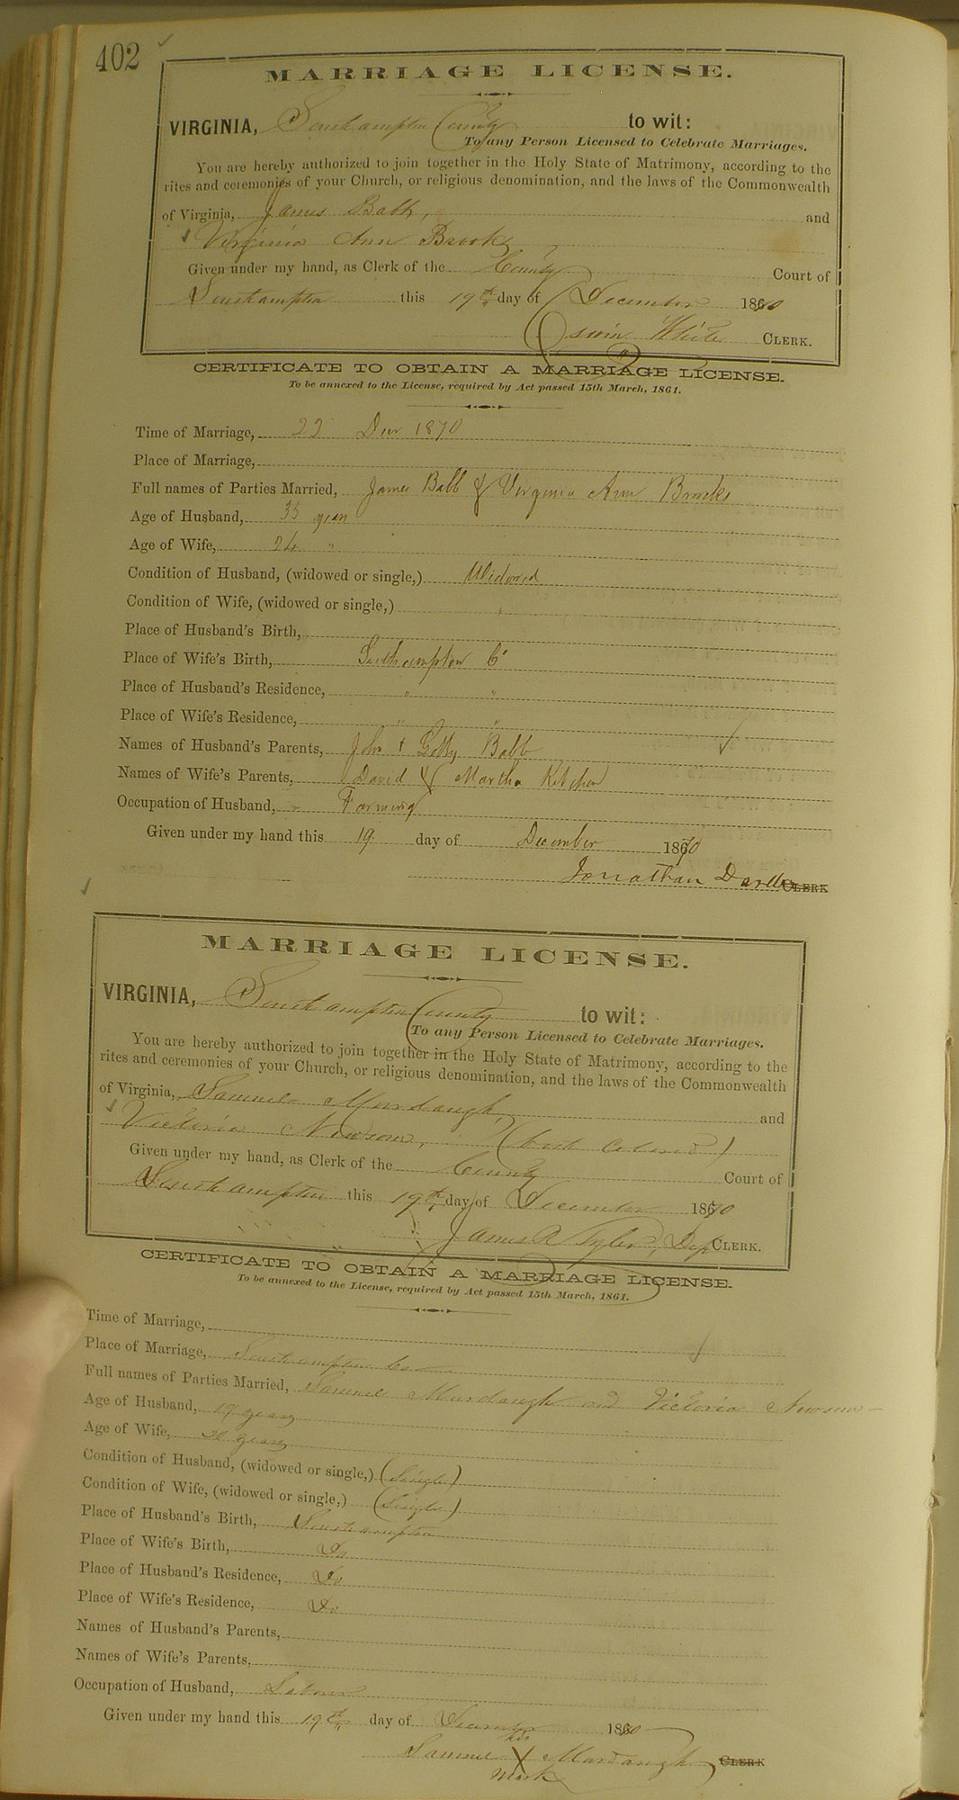 402
MARRIAGE LICENSE.
VIRGINIA, Southampton County to wit:
To any Person Licensed to Celebrate Marriages.
You are hereby authorized to join together in the Holy State of Matrimony, according to the
rites and ceremonies of your Church, or religious denomination, and the laws of the Commonwealth
of Virginia, James Babb, and
Virginia Ann Brooks
Given under my hand, as Clerk of the County Court of
Southampton this 19th day of December 1870
White CLERK.
CERTIFICATE TO OBTAIN A MARRIAGE LICENSE.
To be annexed to the License, required by Act passed 15th March, 1861.
Time of Marriage, 22 Decr 1870
Place of Marriage,
Full names of Parties Married, James Babb & Virginia Ann Brooks
Age of Husband, 35 years
Age of Wife, 24 "
Condition of Husband, (widowed or single,) Widowed
Condition of Wife, (widowed or single,) "
Place of Husband's Birth,
Place of Wife's Birth, Southampton Co
Place of Husband's Residence, " "
Place of Wife's Residence, " "
Names of Husband's Parents, John & Babb
Names of Wife's Parents, David & Martha Kitchen
Occupation of Husband, Farming
Given under my hand this 19 day of December 1870
Jonathan Darden CLERK
MARRIAGE LICENSE.
VIRGINIA, Southampton County to wit:
To any Person Licensed to Celebrate Marriages.
You are hereby authorized to join together in the Holy State of Matrimony, according to the
rites and ceremonies of your Church, or religious denomination, and the laws of the Commonwealth
of Virginia, Samuel Murdaugh, and
Victoria Newsom, (both Colored)
Given under my hand, as Clerk of the County Court of
Southampton this 19th day of December 1870
James R Tyler, Dep CLERK.
CERTIFICATE TO OBTAIN A MARRIAGE LICENSE.
To be annexed to the License, required by Act passed 15th March, 1861.
Time of Marriage,
Place of Marriage, Southampton Co
Full names of Parties Married, Samuel Murdaugh and Victoria Newsom
Age of Husband, years
Age of Wife, years
Condition of Husband, (widowed or single,) (Single)
Condition of Wife, (widowed or single,) (Single)
Place of Husband's Birth, Southampton
Place of Wife's Birth, Do
Place of Husband's Residence, Do
Place of Wife's Residence, Do
Names of Husband's Parents,
Names of Wife's Parents,
Occupation of Husband,
Given under my hand this 19th day of December 1870
his
Samuel X Murdaugh CLERK
mark